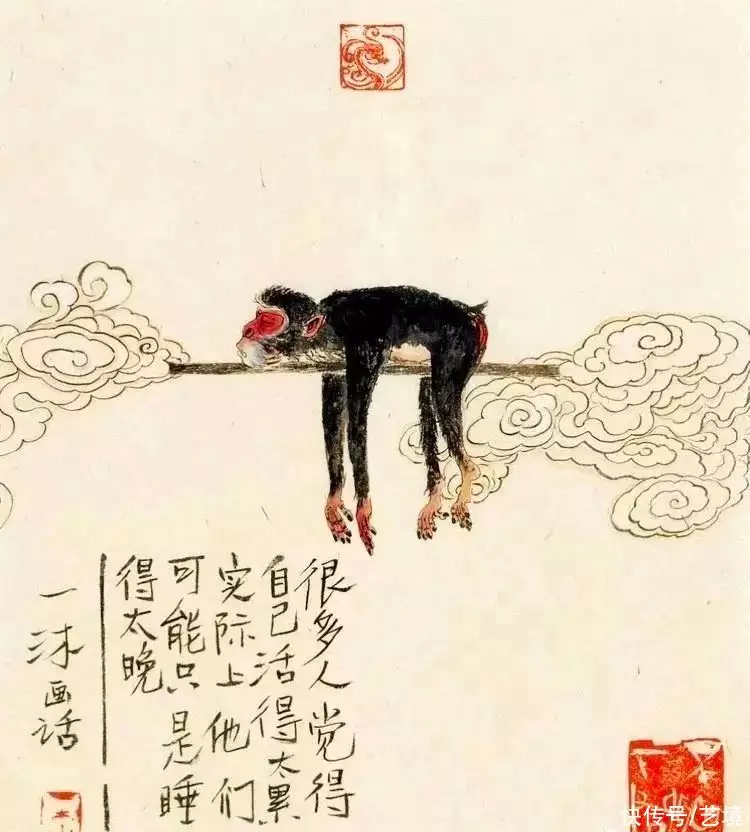 很多人觉得
自己活得太累
实际上他们
可能只是睡
得太晚
一沐画话
快传号/艺境